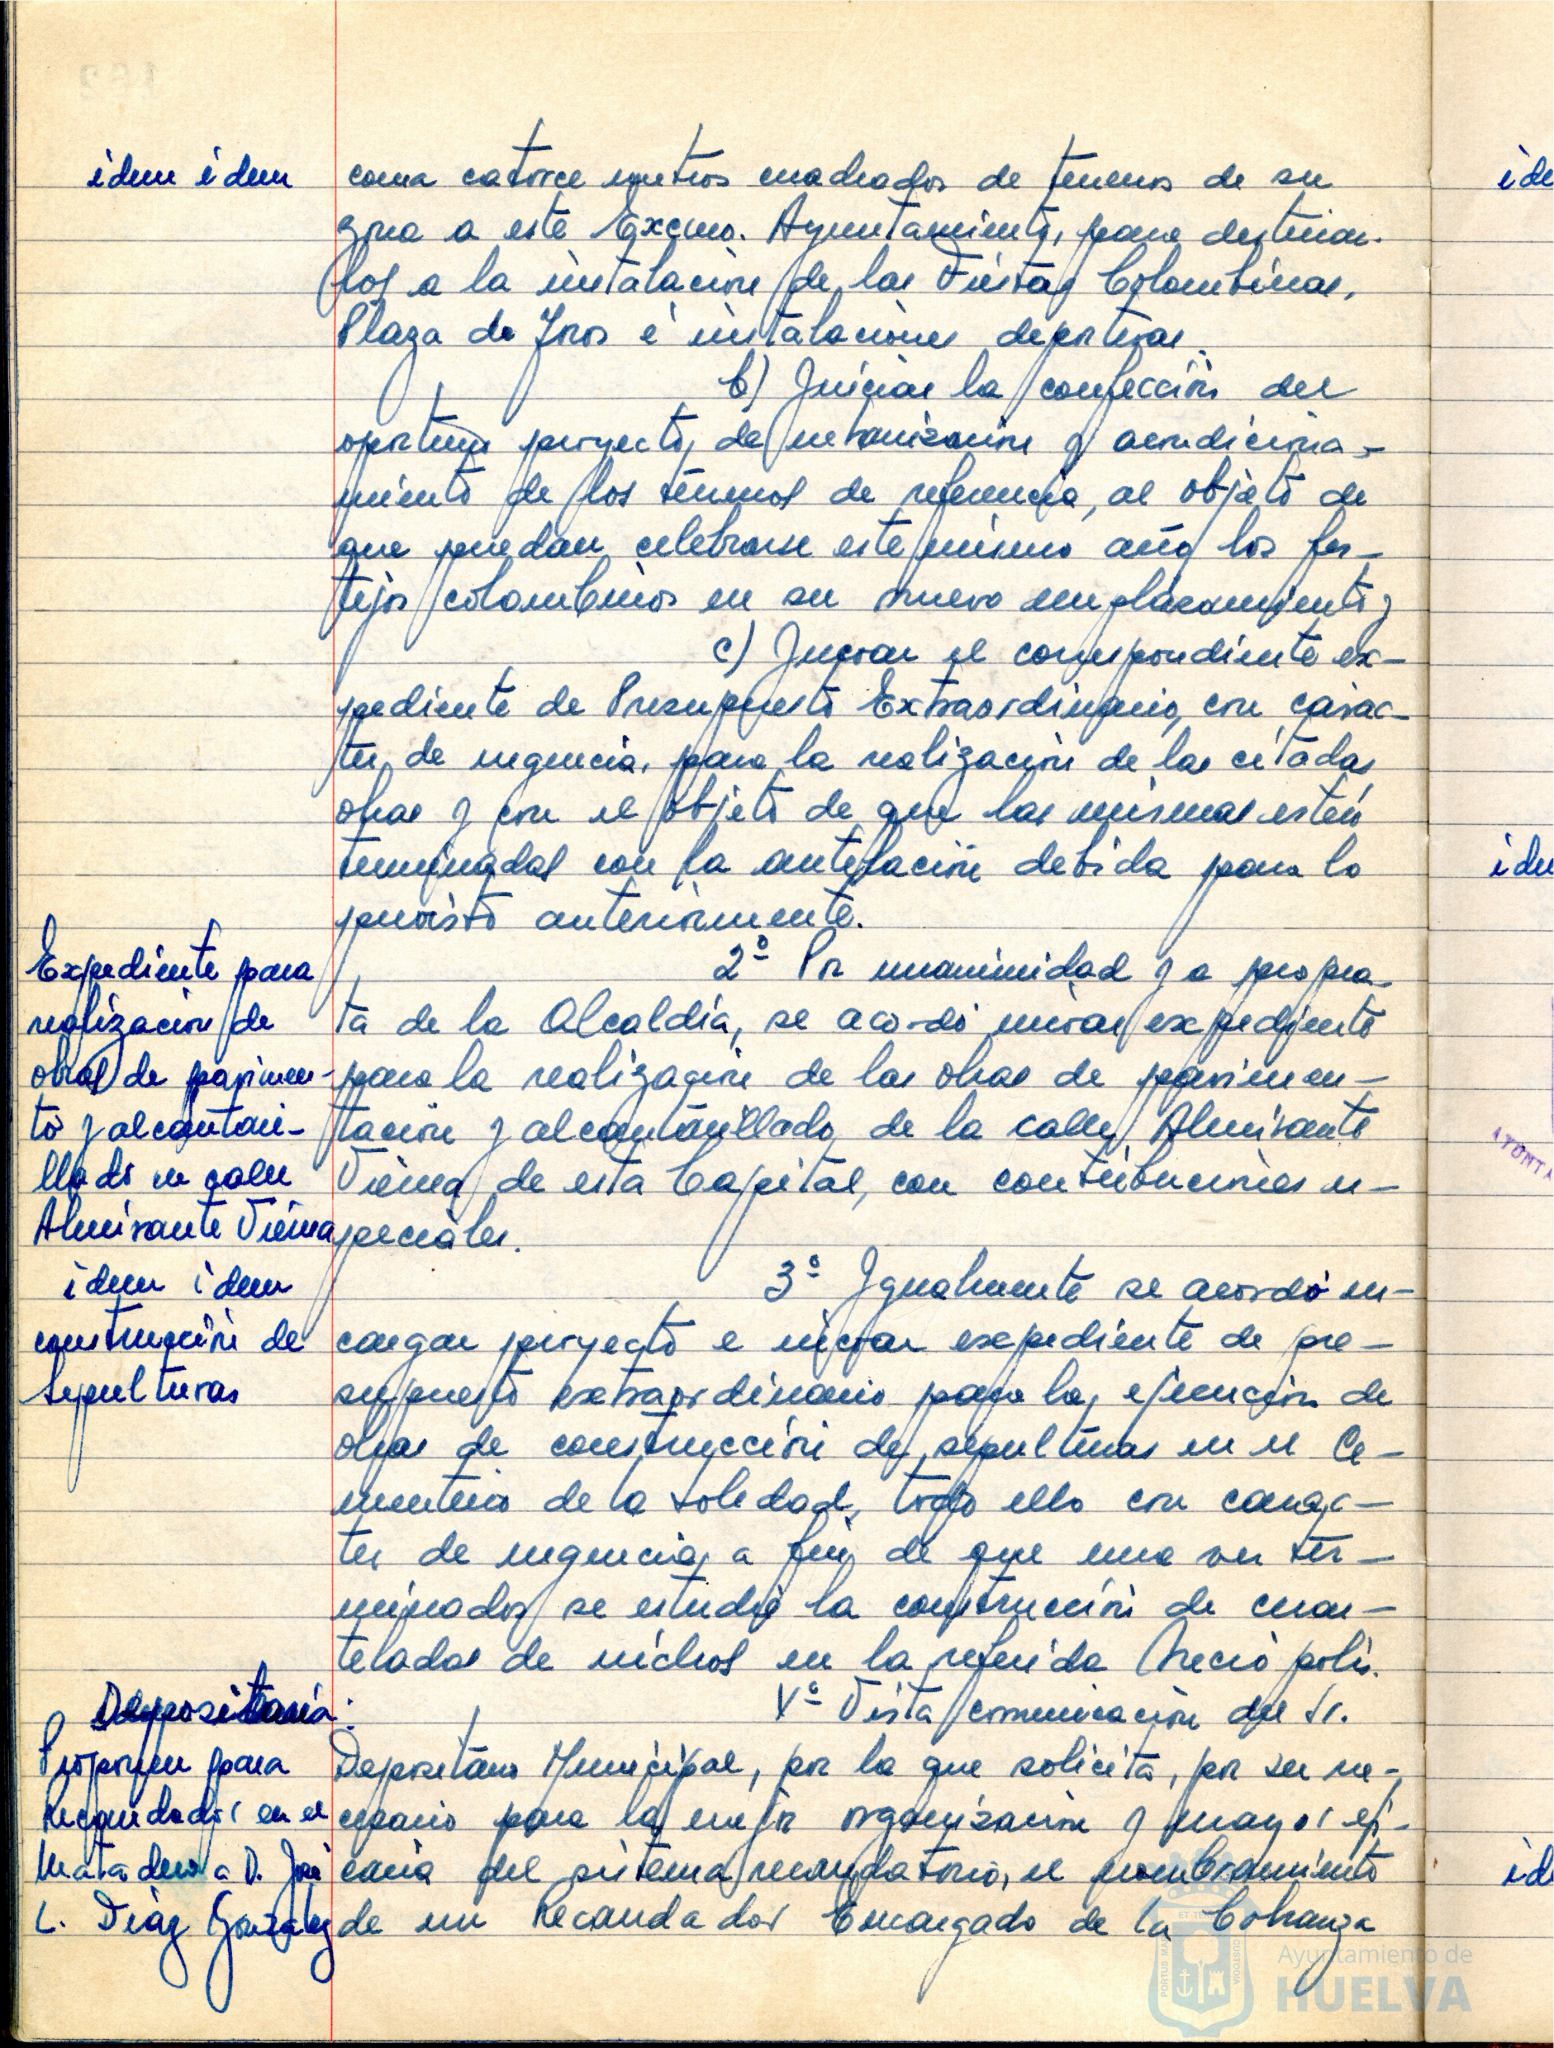 idem idem
coma catorce metros cuadrados de terrenos de su
zona a este Excmo. Ayuntamiento, para destinar-
los a la instalación de las Fiestas Colombinas,
Plaza de Toros é instalaciones deportivas.
b) Iniciar la confección del
oportuno proyecto, de urbanización y acondiciona-
miento de los terrenos de referencia, al objeto de
que puedan celebrarse este mismo año los fes-
tejos colombinos en su nuevo emplazamiento y
c) Iniciar el correspondiente ex-
pediente de Presupuesto Extraordinario, con carác-
ter de urgencia, para la realización de las citadas
obras y con el objeto de que las mismas estén
terminadas con la antelación debida para lo
previsto anteriormente.
Expediente para
realización de
obras de pavimen-
to y alcantari-
llado en calle
Almirante Viema
2º Por unanimidad y a propues-
ta de la Alcaldía, se acordó iniciar expediente
para la realización de las obras de pavimen-
tación y alcantarillado de la calle Almirante
Viema de esta Capital, con contribuciones es-
peciales.
idem idem
construcción de
sepulturas
3º Igualmente se acordó en-
cargar proyecto e iniciar expediente de pre-
supuesto extraordinario para la ejecución de
obras de construcción de sepulturas en el Ce-
menterio de la Soledad, todo ello con carác-
ter de urgencia, a fin de que una vez ter-
minados se estudie la construcción de cuar-
teladas de nichos en la referida Necrópolis.
Depositaría:
Proponen para
Recaudador en el
Matadero a D. José
L. Díaz González
Vº Vista comunicación del Sr.
Depositario Municipal, por la que solicita, por ser ne-
cesario para la mejor organización y mayor efi-
cacia del sistema recaudatorio, el nombramiento
de un Recaudador Encargado de la Cobranza
ide
idem
AYUNTA
ide
Ayuntamiento de
HUELVA